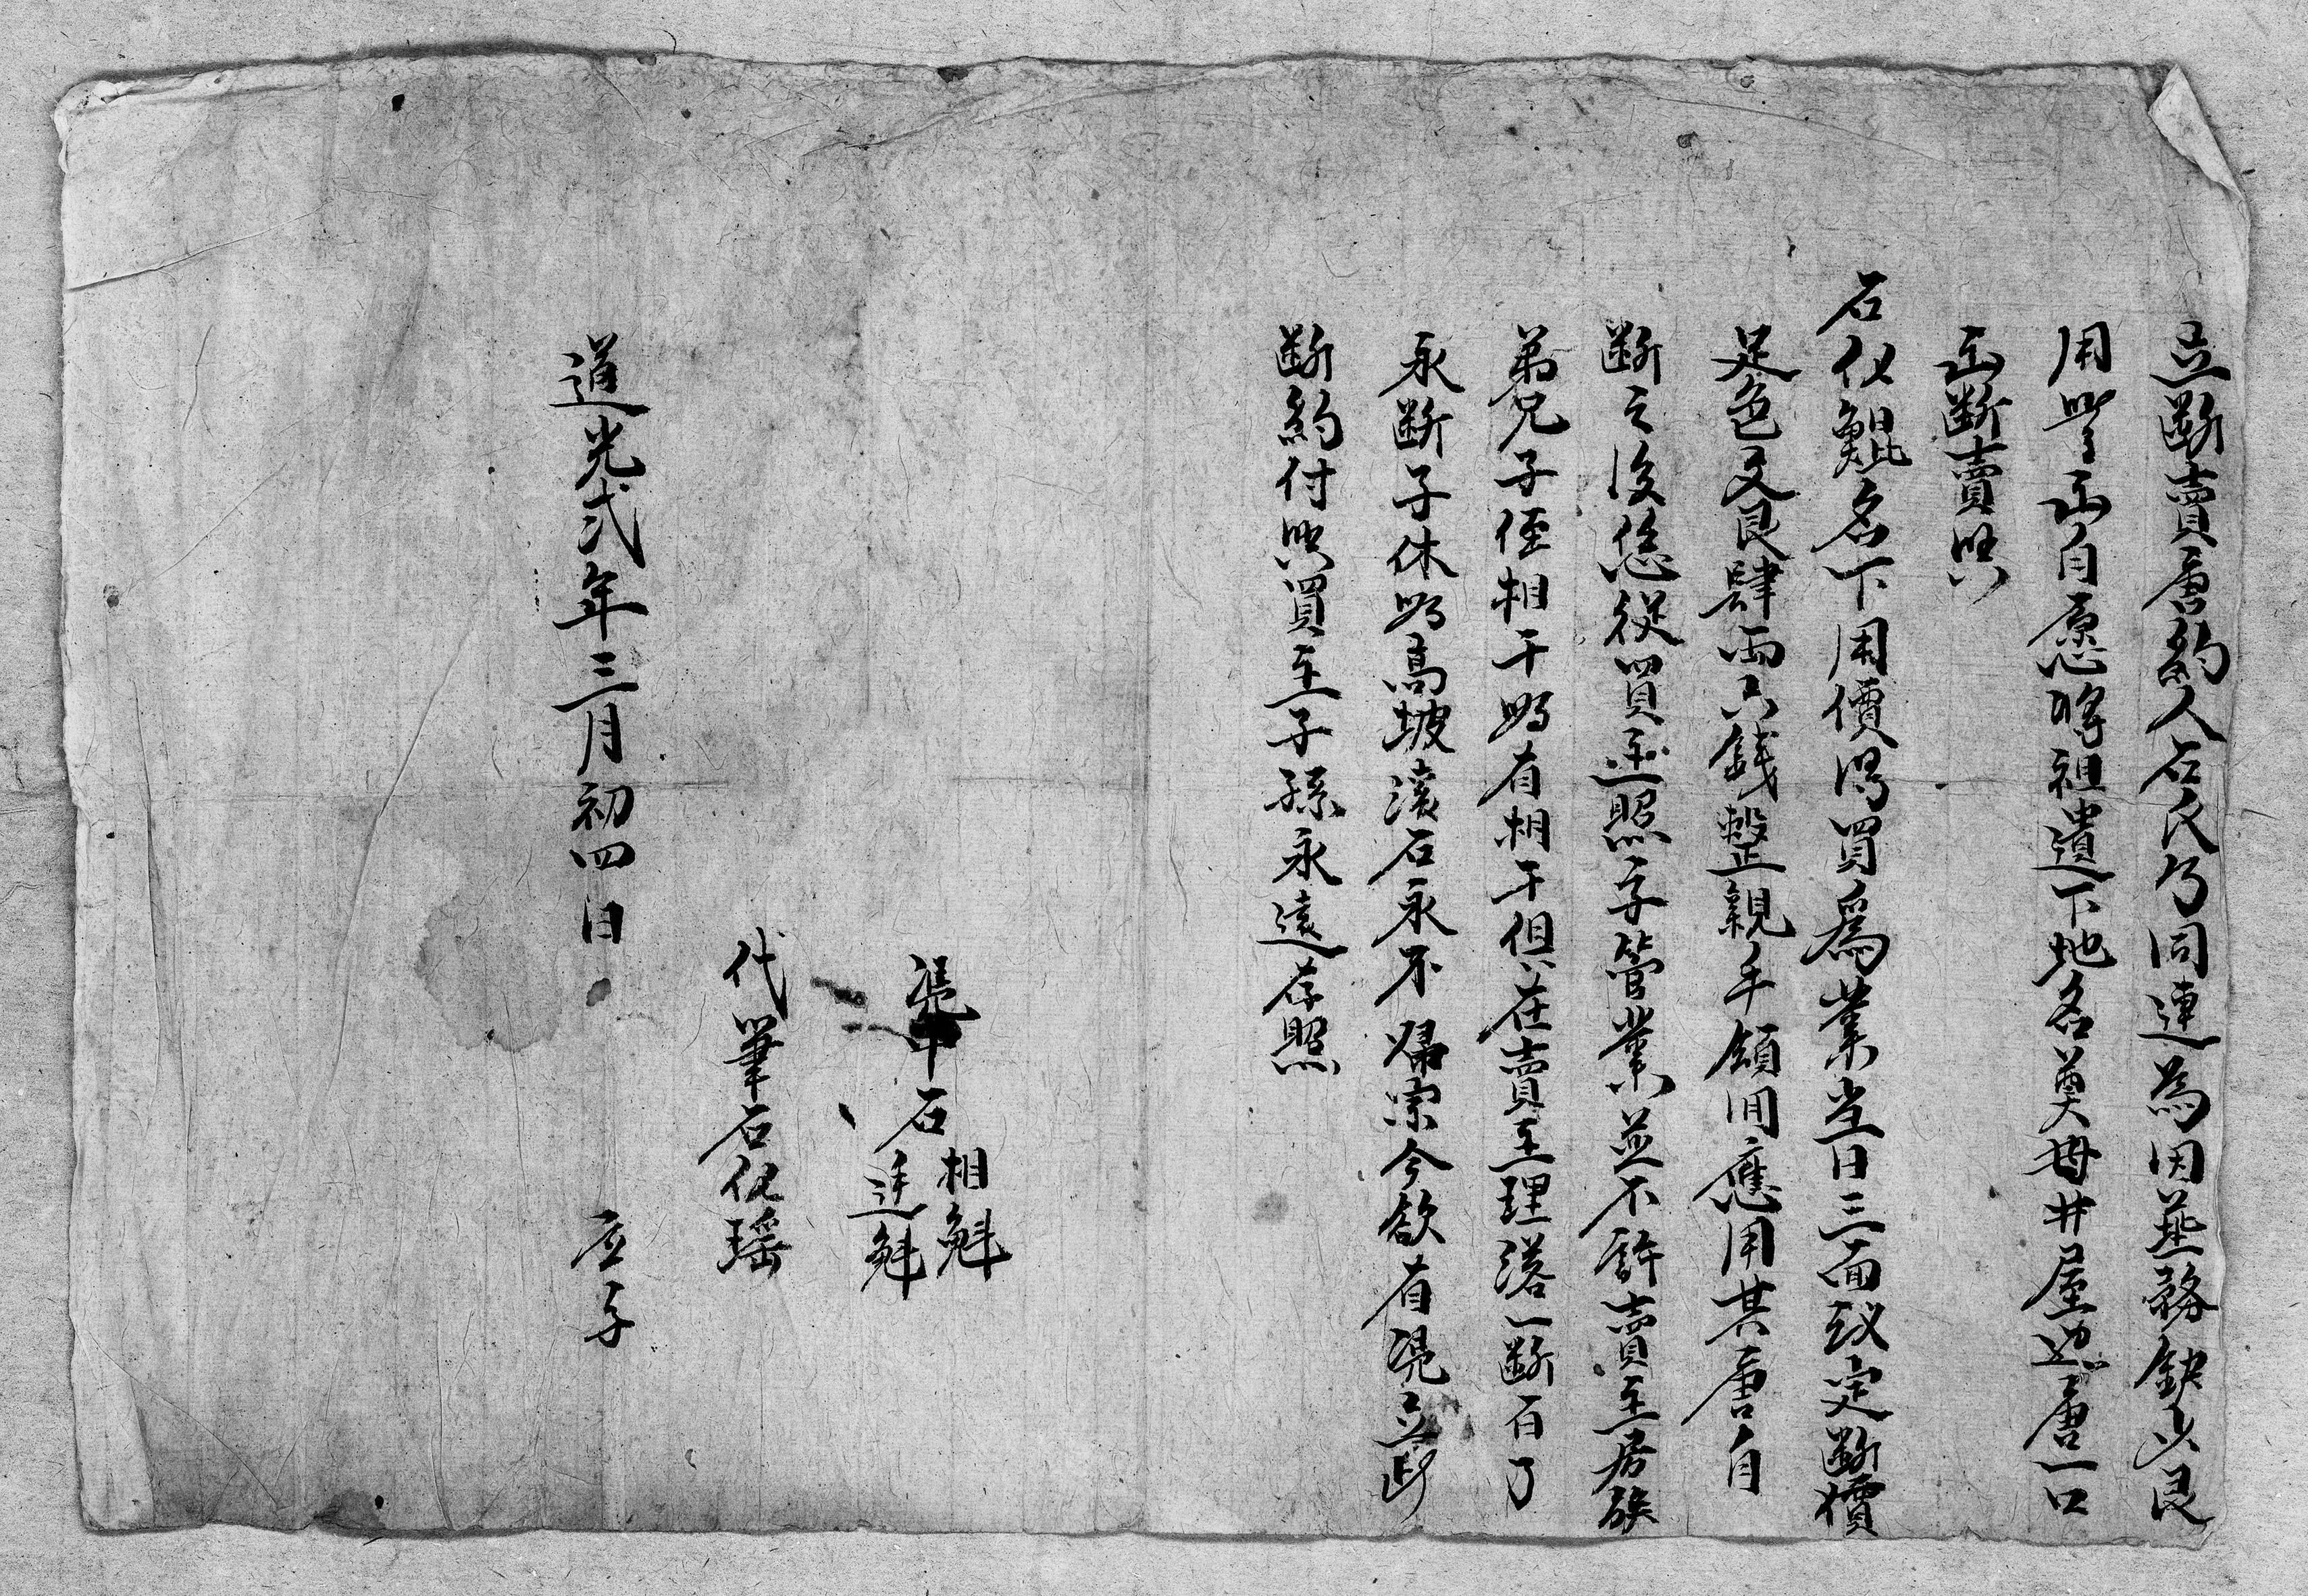 立断賣唐約人石氏 同連為因無務缺少艮
用 自愿將祖遺下地名 毋井屋边唐一口
断賣與
石化鯤名下用價得買為業当日三面议定断價
足色文艮肆両六錢整親手領囬應用其唐自
断之後恁從買主照字管業並不許賣主房族
弟兄子侄相干如有相干俱在賣主理落一断百了
永断子休如高坡滚石永不歸宗今欲有凴立此
断約付與買主子孫永遠存照
凴中石 相魁 廷魁
代筆石化瑶
道光弍年三月初四日 立字